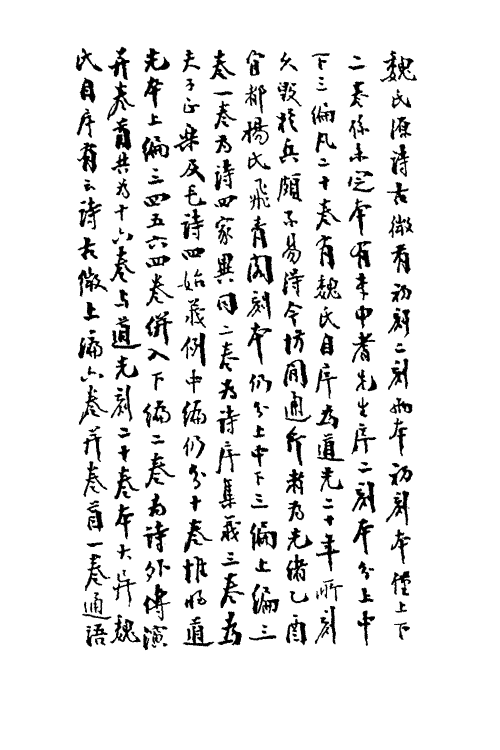 魏氏源詩古微有初刻二刻兩本初刻本僅上下
二卷係未定本有李申耆先生序二刻本分上中
下三編凡二十卷有魏氏自序為道光二十年所刻
久毀於兵頗不易得今坊間通行者為光緒乙酉
宜都楊氏飛青閣刻本仍分上中下三編上編三
卷一卷為詩四家異同二卷為詩序集義三卷為
夫子正樂及毛詩四始義例中編仍分十卷惟將道
光本上編三四五六四卷併入下編二卷為詩外傳演
并卷首共為十六卷與道光刻二十卷本大異魏
氏自序有云詩古微上編六卷并卷首一卷通語